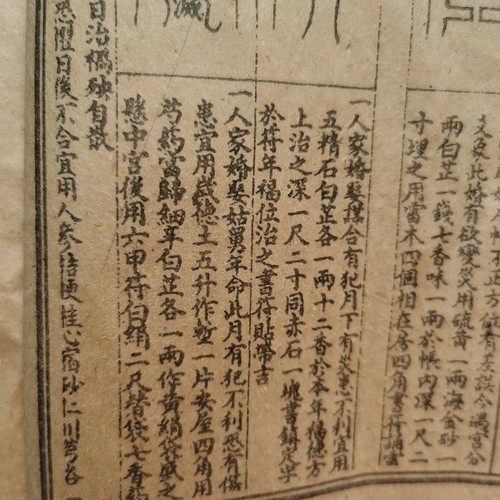 爻象此婚有欲變災用硫黄一兩海金砂一
兩白芷一錢七香味一兩於帳內深一尺二
寸埋之用雷木四個相在居四角書符鎮
一人家婚娶擇合有犯月下有災患不利宜用
五精石白芷各一兩十二香於本年福德方
上治之深一尺二寸同赤石一塊書鎮定
於符年福位治之書符貼帶吉
一人家婚娶姑舅年命此月有犯不利恐有傷
患宜用歲德土五升作塹一片安屋四角用
芍藥當歸細辛白芷各一兩作黄絹袋盛之
懸中宮後用六甲符白絹二尺 袋七香
日治禍殃自散
恐懼日後不合宜用人參桔梗桂心宿砂仁川芎各